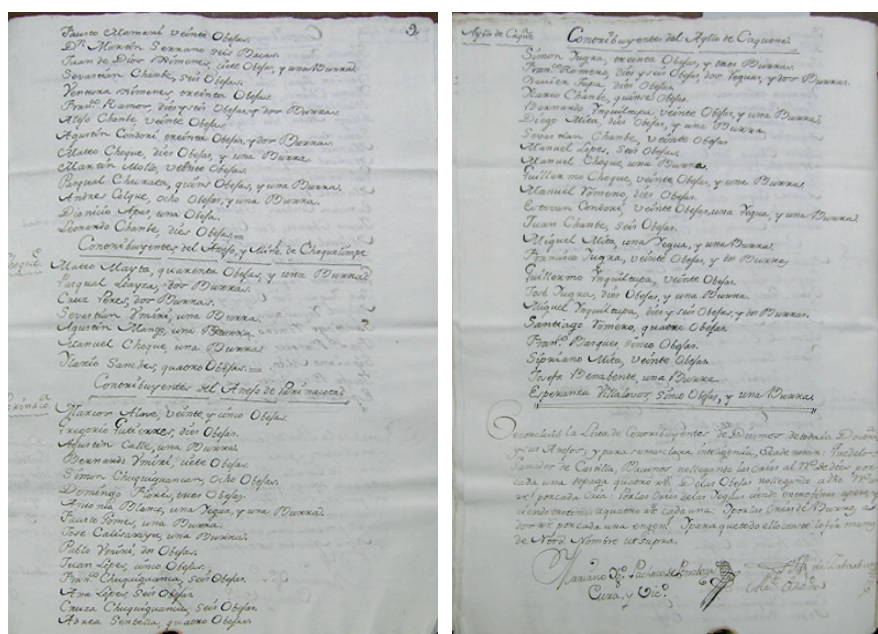 9
Fausto Mamani veinte Obejas.
Dn. Martin Serrano seis Bacas.
Juan de Dios Ximenes, siete Obejas, y una Burra.
Sevastian Chambe, seis Obejas.
Ventura Ximenes, treinta Obejas.
Franco. Ramos, dies y seis Obejas, y dos Burras.
Alejo Chambe veinte Obejas.
Agustin Condori, treinta Obejas, y dos Burras.
Mateo Choque, dies Obejas, y una Burra.
Martin Mollo, veinte Obejas.
Pasqual Checxata, quinse Obejas, y una Burra.
Andres Colque, ocho Obejas, y una Burra.
Dionicio Apas, una Obeja.
Leonardo Chambe, dies Obejas.
Contribuyentes del Anejo, y Minl. de Choquelimpe
Mateo Mayta, quarenta Obejas, y una Burra.
Pasqual dos Burras.
Cruz Peres, dos Burras.
Sevastian Ymiri, una Burra.
Agustin Mange, una Burra.
Manuel Choque, una Burra.
Ylario Sanches, quatro Obejas.
Contribuyentes del Anejo de Parinacota
Marcos Alave, veinte y cinco Obejas.
Gregorio Gutierres, dies Obejas.
Agustin Calle, una Burra.
Bernardo Ymiri, siete Obejas.
Simon Chuquiguancan, ocho Obejas.
Domingo Flores, tres Obejas.
Antonia Blanco, una Yegua, y una Burra.
Fausto Gomes, una Burra.
Jose Callisardyn, una Burra.
Pablo Ymiri, dos Obejas.
Juan Lopes, cinco Obejas.
Franco. Chuquiguanca, seis Obejas.
Ana Lopes, seis Obejas
Cruza Chuquiguanca, seis Obejas.
Andrea Sentella, quatro Obejas.
Ayllo de Caqne.
Contribuyentes del Ayllo de Caquena.
Simon Jugra, treinta Obejas, y tres Burras.
Franco. Romero, dies y seis Obejas, dos Yeguas, y dos Burras.
Xavier Tupa, dies Obejas.
Mario Chambe, quinse Obejas.
Bernardo Ynquiltupa, veinte Obejas, y una Burra.
Diego Mita, dies Obejas, y una Burra.
Sevastian Chambe, veinte Obejas
Manuel Lopes, seis Obejas.
Manuel Choque, una Burra.
Guillermo Choque, veinte Obejas, y una Burra.
Manuel Pomero, dies Obejas.
Estevan Condori, veinte Obejas, una Yegua, y una Burra.
Juan Chambe, seis Obejas.
Miguel Mita, una Yegua, y una Burra.
Francisco Jugra, veinte Obejas, y dos Burras
Guillermo Ynquiltupa, veinte Obejas.
Jose Jugra, dies Obejas, y una Burra.
Miguel Ynquiltupa, dies y seis Obejas, y dos Burras.
Santiago Pomero, quatro Obejas.
Franco. Vasques, cinco Obejas.
Sipriano Mita, veinte Obejas.
Josefa Benabente, una Burra.
Esperansa Villalovos, sinco Obejas, y una Burra.
Se concluió la Lista de Contribuyentes de Diesmos de toda la Doctrina
y sus Anejos; y para su mas clara inteligencia,
Ganador de Castilla, Bacunos no llegando las Crias al No. de dies, por
cada una se paga quatro rrs. De las Obejas no llegando a dho No.
rrl. por cada Cria. Por las Crias de las Yeguas
quatro rrs. cada una. Y por las Crias de Burra,
dos rrs. por cada una Y para que todo ello conste lo firma
de Nord. Nombre ut supra.
Mariano Pacheco de Peñalosa
Cura, y Vico.